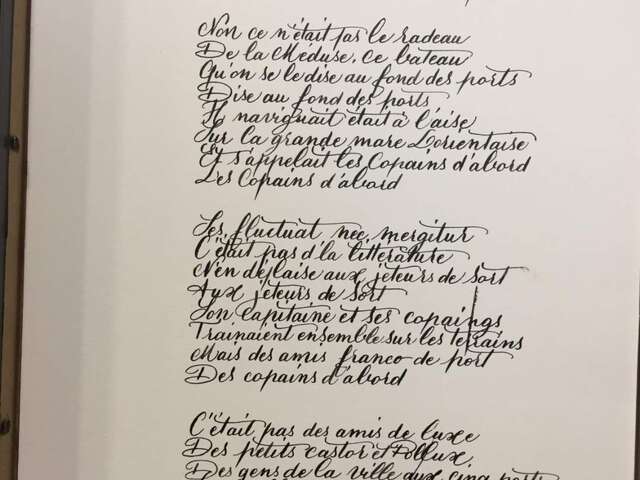 Non ce n'était pas le radeau
De la Méduse, ce bateau
Qu'on se le dise au fond des ports
Dise au fond des ports
Il naviguait était à l'aise
Sur la grande mare Lorientaise
Et s'appelait les Copains d'abord
Les Copains d'abord
Ses fluctuat nec mergitur
C'était pas d'la littérature
N'en déplaise aux jeteurs de sort
Aux jeteurs de sort
Son capitaine et ses copaings
Trainaient ensemble sur les terrains
Mais des amis franco de port
Des copains d'abord
C'était pas des amis de luxe
Des petits castor et Pollux
Des gens de la ville aux cinq ports